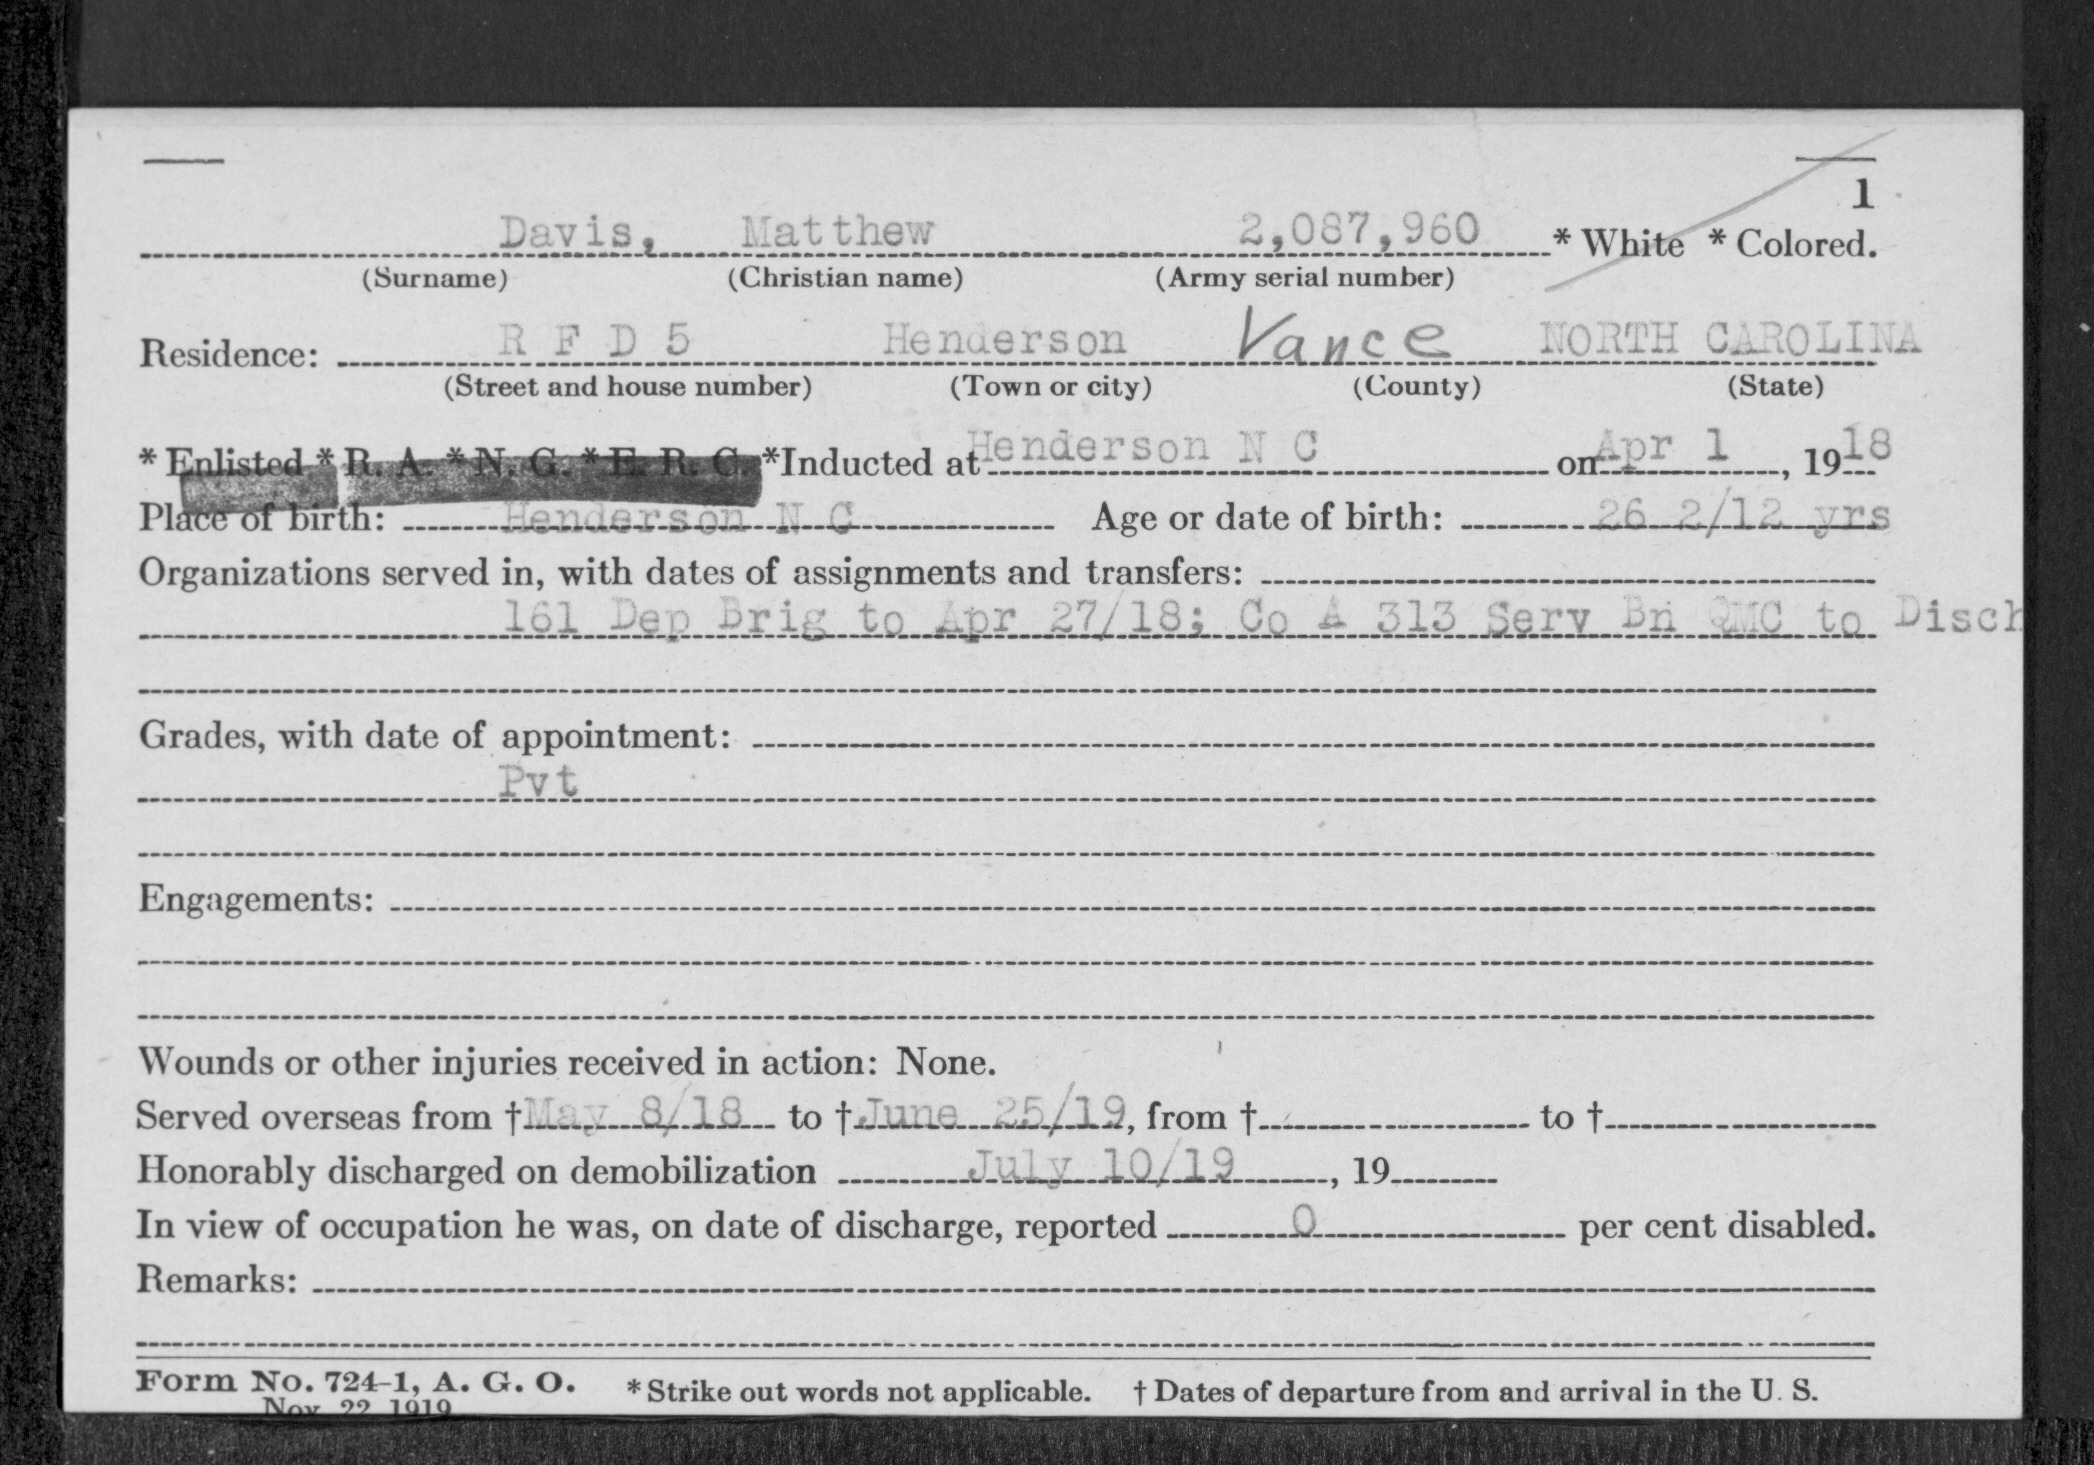 1
Davis, Matthew 2,087,960 * White * Colored.
(Surname) (Christian name) (Army serial number)
Residence: R F D 5 Henderson Vance NORTH CAROLINA
(Street and house number) (Town or city) (County) (State)
* Enlisted * R. A. * N. G. * E. R. C. *Inducted at Henderson N C on Apr 1, 1918
Place of birth: Henderson N C Age or date of birth: 26 2/12 yrs
Organizations served in, with dates of assignments and transfers:
161 Dep Brig to Apr 27/18; Co A 313 Serv Bn QMC to Disch
Grades, with date of appointment:
Pvt
Engagements:
Wounds or other injuries received in action: None.
Served overseas from †May 8/18 to †June 25/19, from † to †
Honorably discharged on demobilization July 10/19, 19
In view of occupation he was, on date of discharge, reported 0 per cent disabled.
Remarks:
Form No. 724-1, A. G. O. * Strike out words not applicable. † Dates of departure from and arrival in the U. S.
Nov. 22, 1919